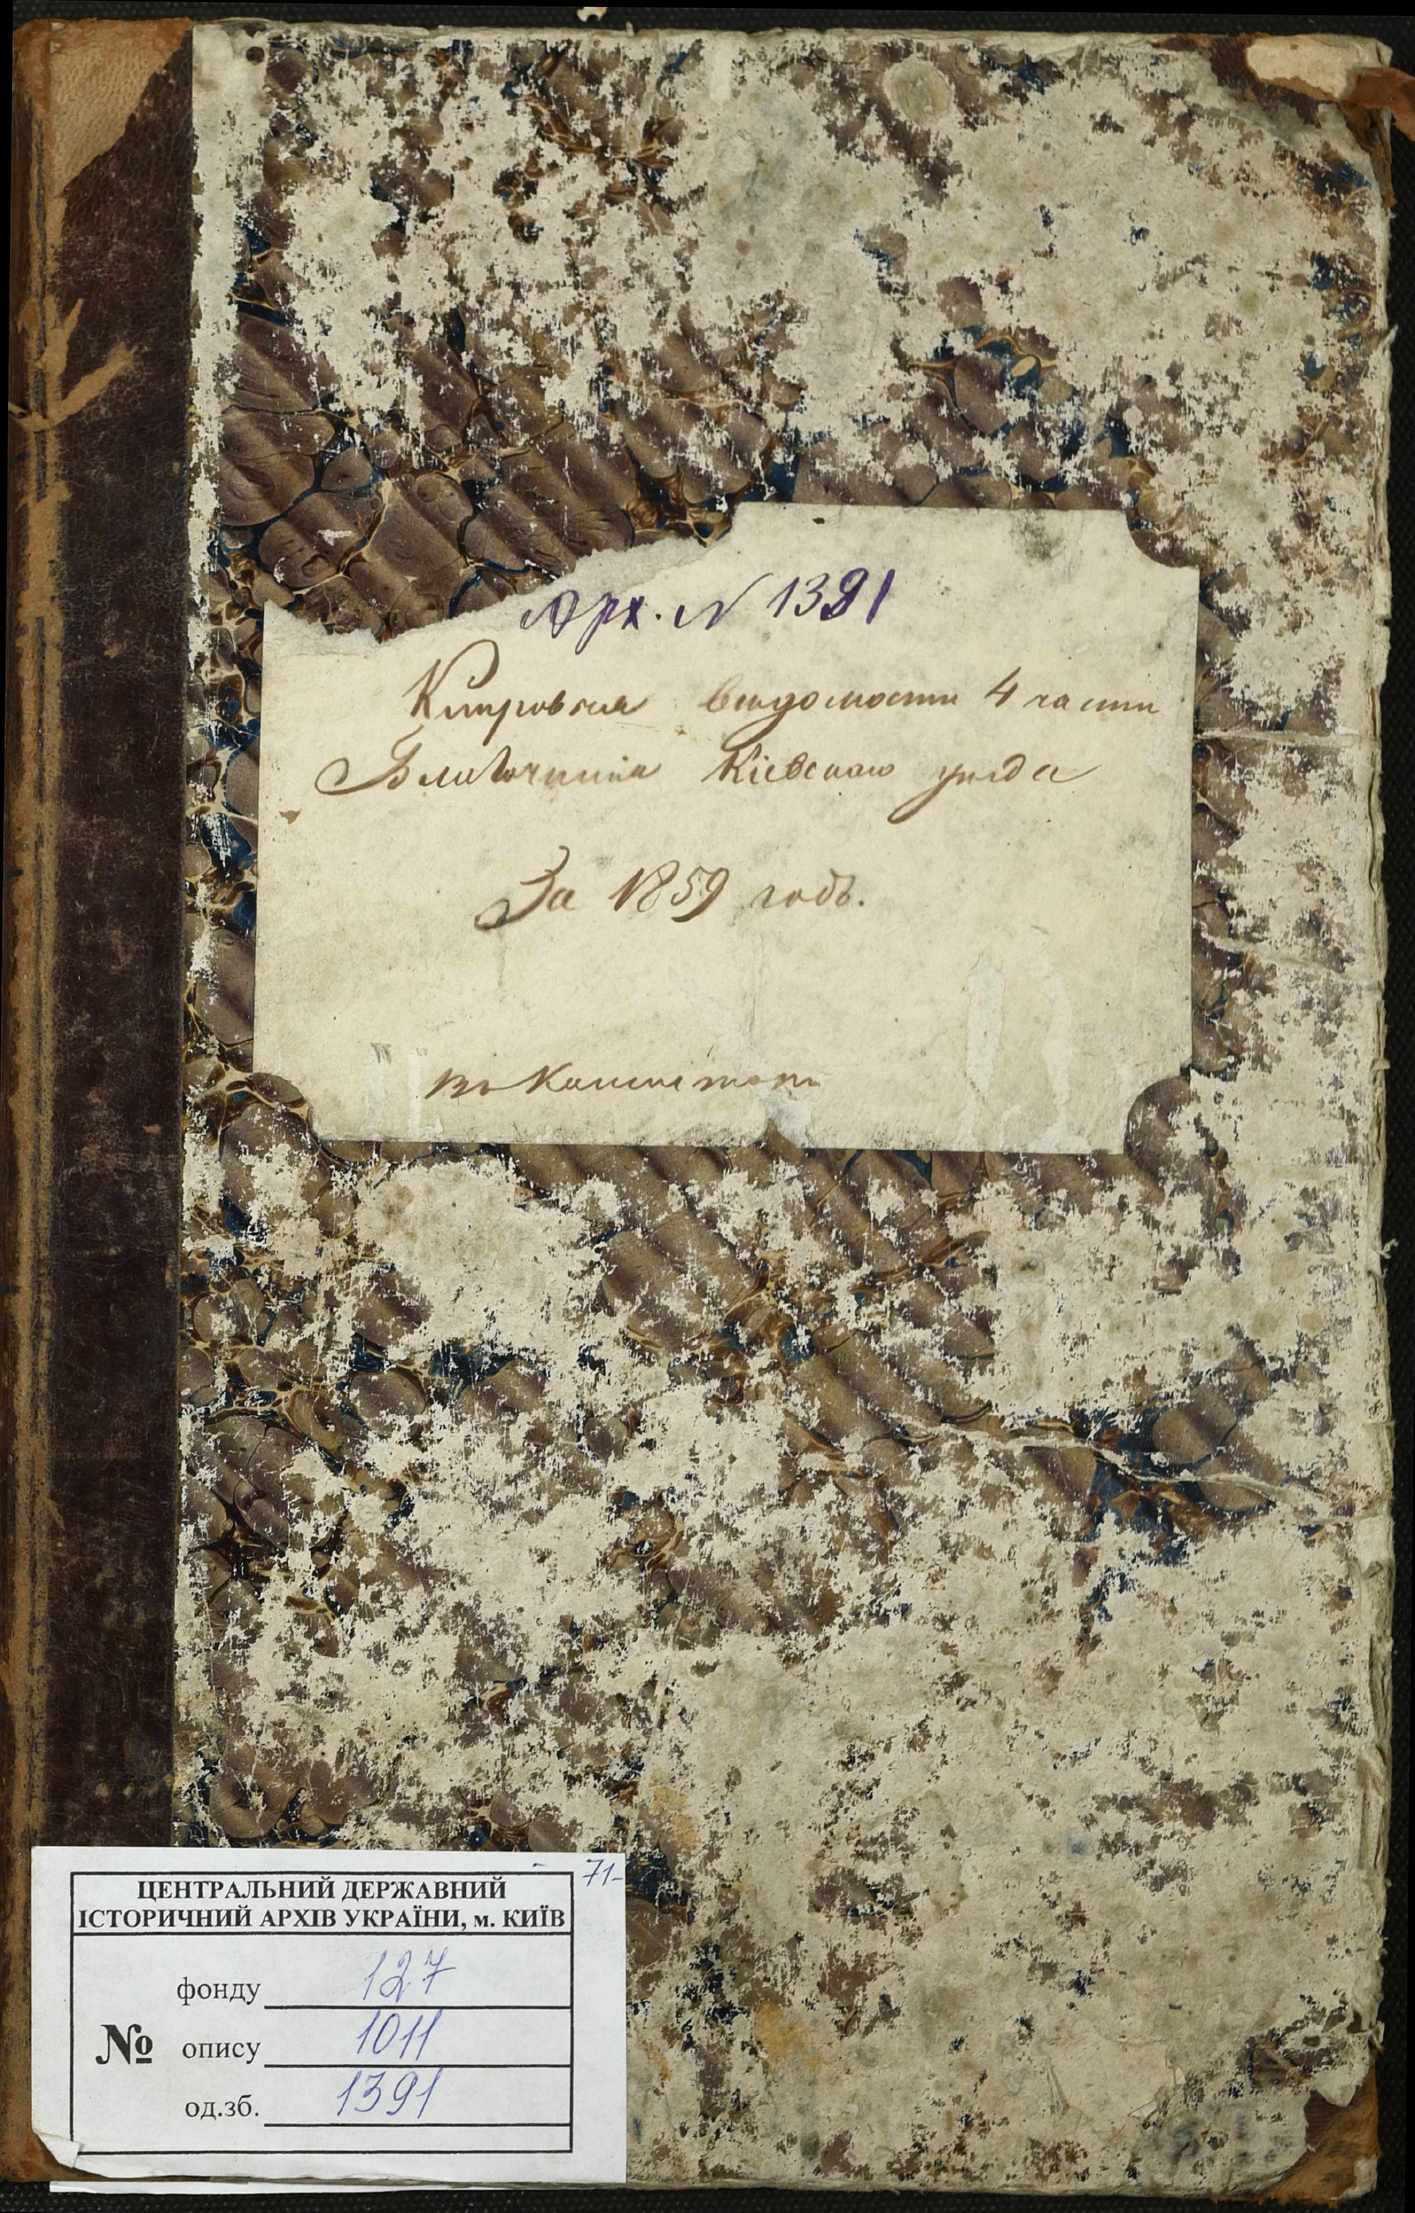 Арх. N 1391
Клировыя ведомости 4 части
Благочинія Кіевскаго уезда
За 1859 годъ.
71-
ЦЕНТРАЛЬНИЙ ДЕРЖАВНИЙ
ІСТОРИЧНИЙ АРХІВ УКРАЇНИ, м. КИЇВ
фонду 127
№ опису 1011
од.зб. 1391